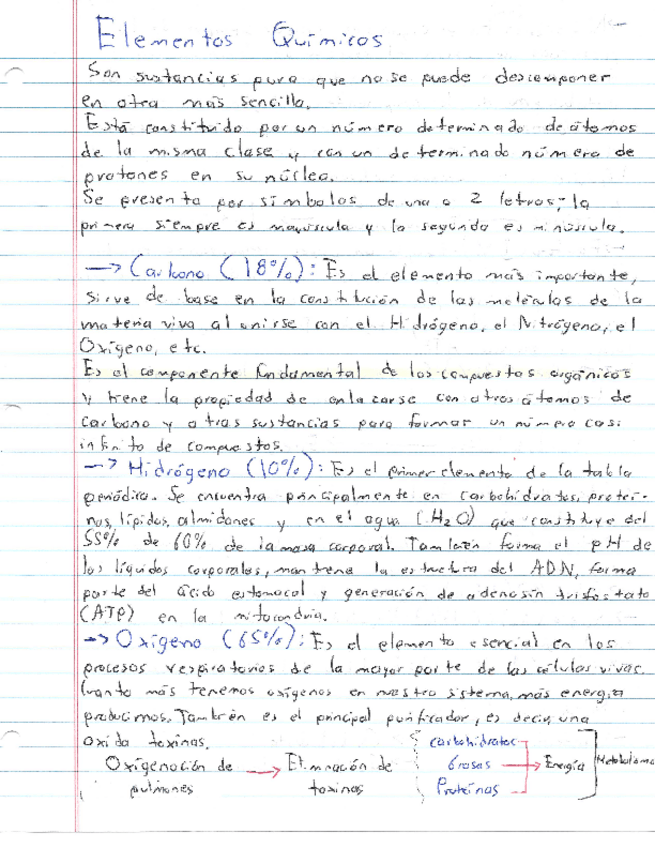 Elementos Químicos
Son sustancias pura que no se puede descomponer
en otra más sencilla.
Está constituido por un número determinado de átomos
de la misma clase y con un determinado número de
protones en su núcleo.
Se presenta por símbolos de una o 2 letras; la
primera siempre es mayúscula y la segunda es minúscula.
→ Carbono (18%): Es el elemento más importante,
sirve de base en la constitución de las moléculas de la
materia viva al unirse con el Hidrógeno, el Nitrógeno, el
Oxígeno, etc.
Es el componente fundamental de los compuestos orgánicos
y tiene la propiedad de enlazarse con otros átomos de
carbono y otras sustancias para formar un número casi
infinito de compuestos.
→ Hidrógeno (10%): Es el primer elemento de la tabla
periódica. Se encuentra principalmente en carbohidratos, proteí-
nas, lípidos, almidones y en el agua (H₂O) que constituye del
55% de 60% de la masa corporal. También forma el pH de
los líquidos corporales, mantiene la estructura del ADN, forma
parte del ácido estomacal y generación de adenosin trifosfato
(ATP) en la mitocondria.
→ Oxígeno (65%): Es el elemento esencial en los
procesos respiratorios de la mayor parte de las células vivas.
Cuanto más tenemos oxígenos en nuestro sistema, más energía
producimos. También es el principal purificador, es decir, una
oxida toxinas.
Oxigenación de → Eliminación de
pulmones toxinas
Carbohidratos
Grasas → Energía Metabolismo
Proteínas